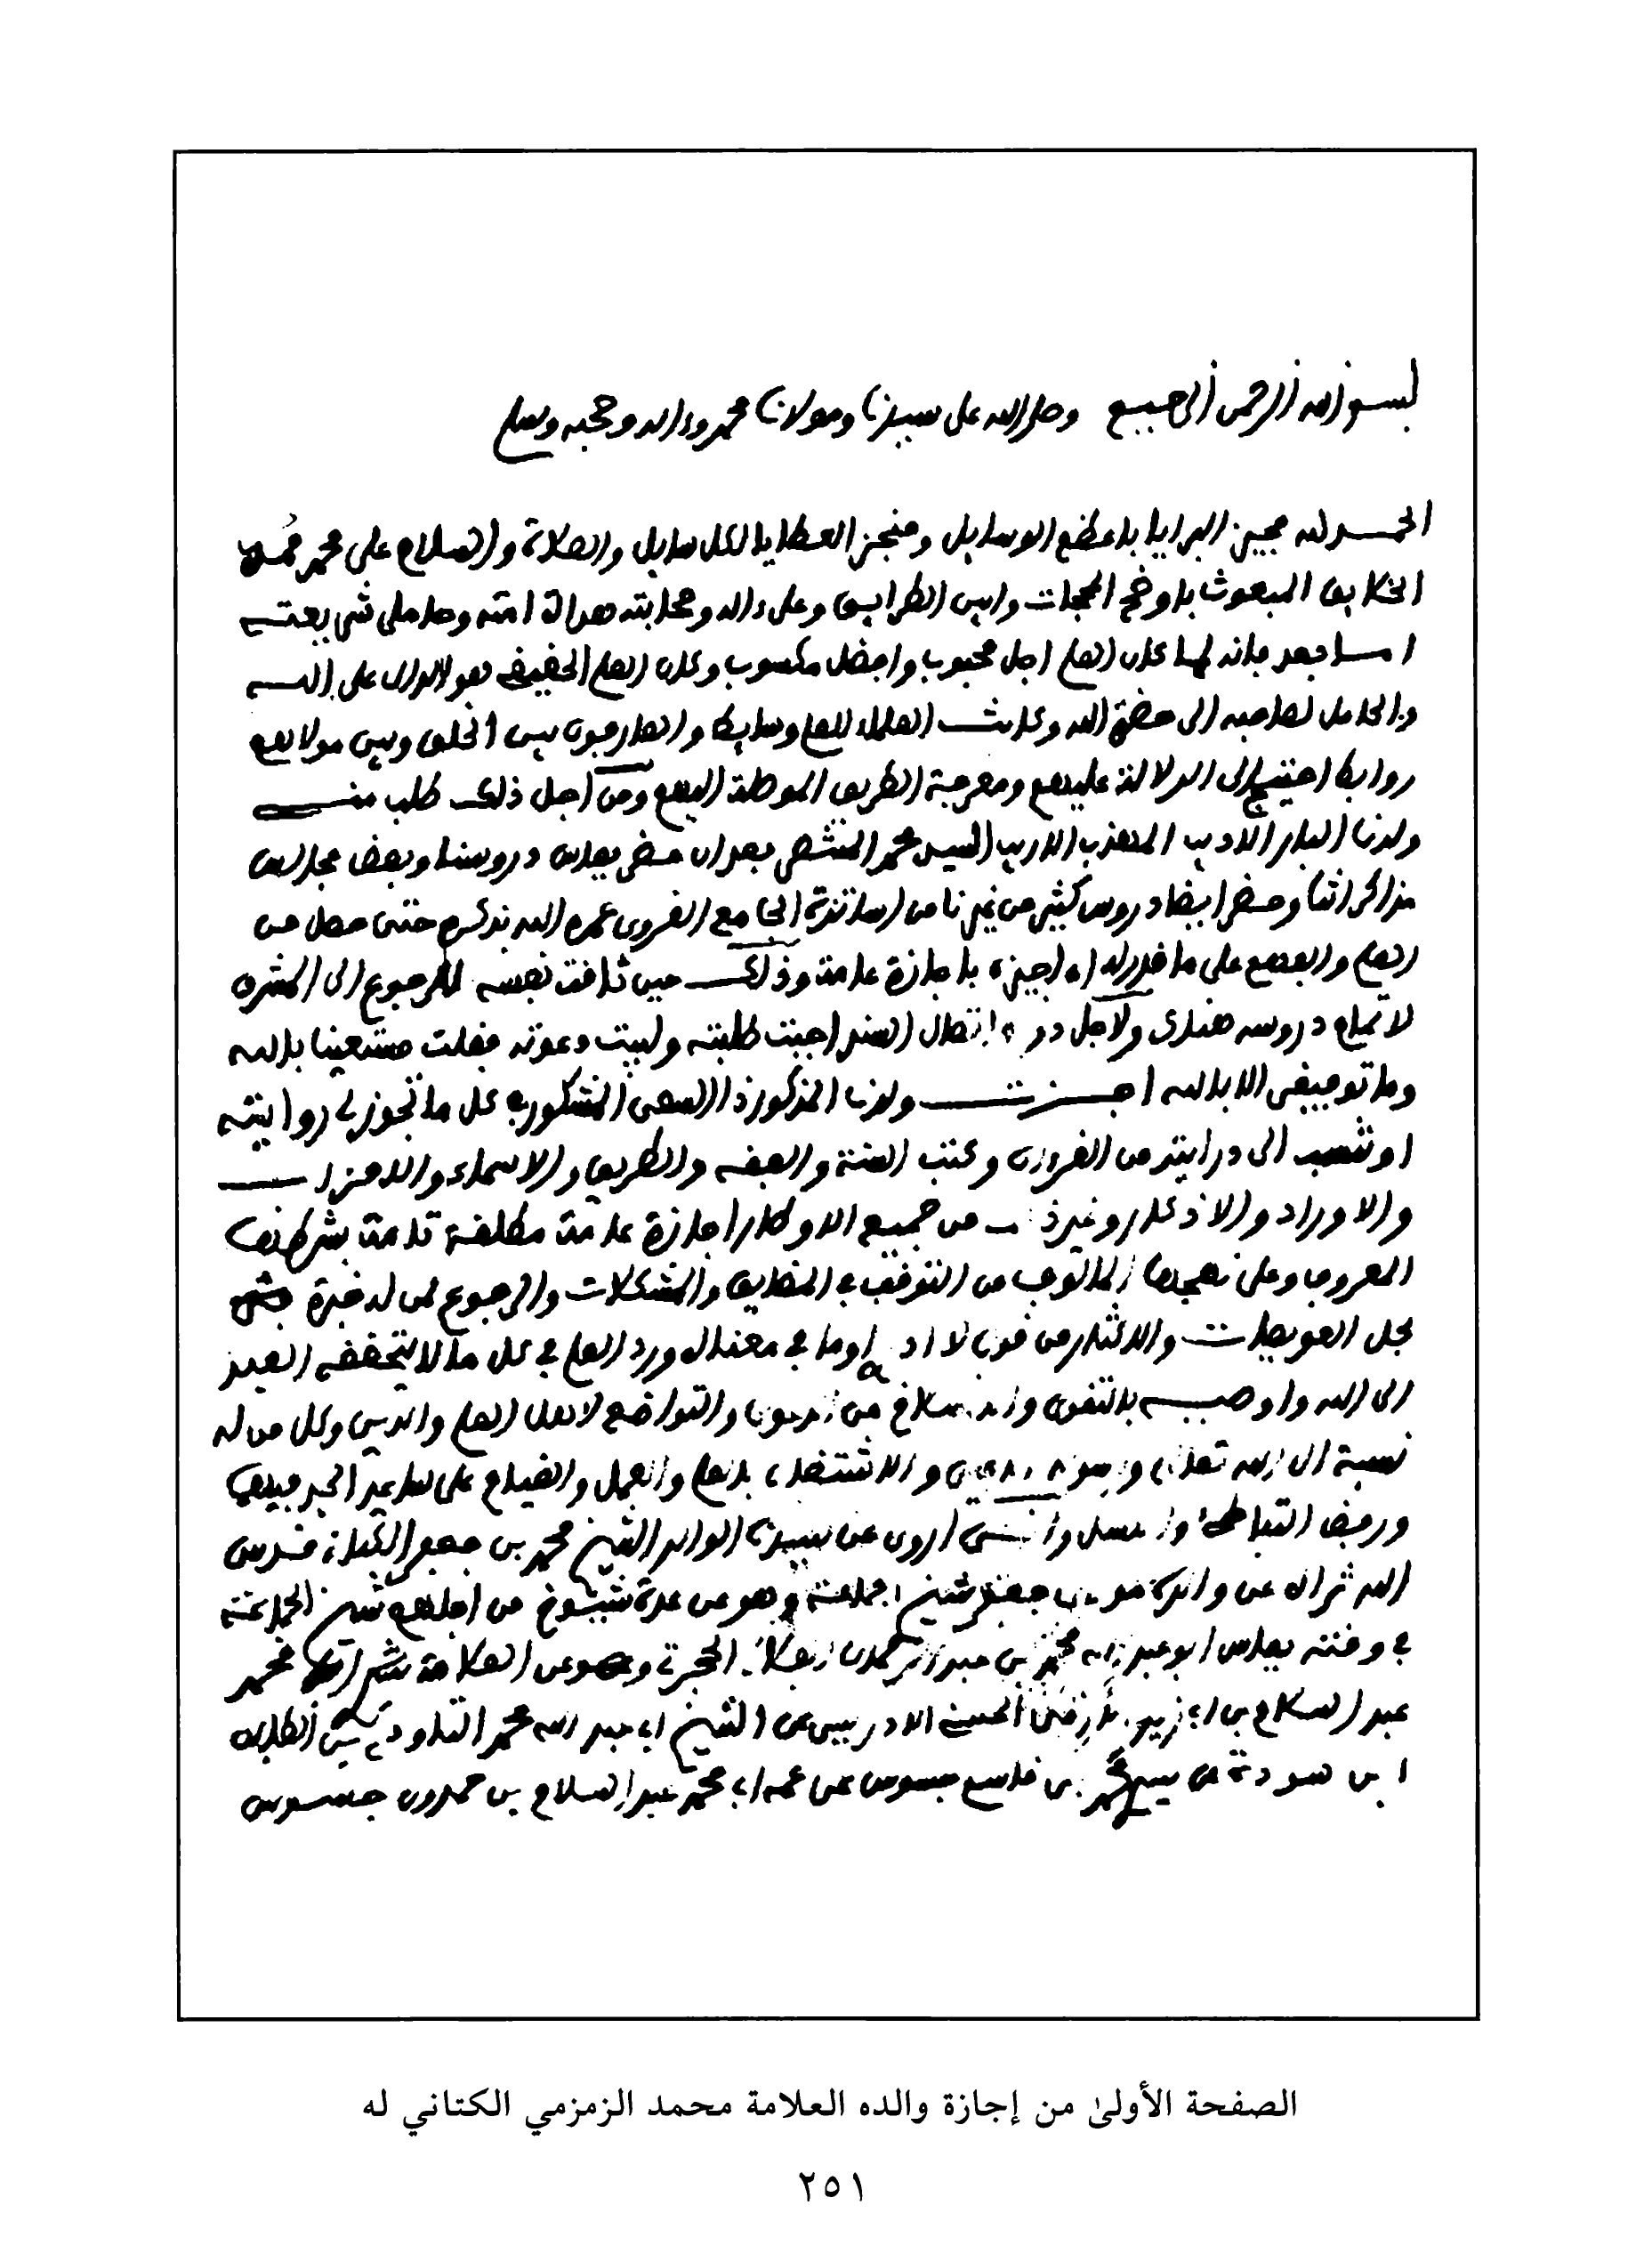 بسم الله الرحمن الرحيم وصلى الله على سيدنا ومولانا محمد وءاله وصحبه وسلم
الحمد لله مجيز البرايا باعظم الوسايل ومنجز العطايا لكل سايل والصلاة والسلام على محمد
الخلايق المبعوث باوضح المحجات وابين الطرايق وعلى ءاله وصحابته هداة امته وحاملى شريعته
امـا بعد فانه لما كان العلم اجل محبوب وافضل مكسوب وكان العلم الحقيقى هو الدال على الله
والحامل لصاحبه الى حضرة الله وكانت العلماء للعلم وسايط والعارفون بين الخلق وبين مولاهم
روابط احتيج الى الدلالة عليهم ومعرفة الطريق الموصلة اليهم ومن اجل ذلك طلب منى
ولدنا البار الاديب المهذب الاريب السيد محمد المنتصر بعد ان حضر بفاس دروسنا وبعض مجالس
مذاكراتنا وحضر ايضا دروس كثير من غيرنا من اساتذة الجامع القروى عمره الله بذكره حتى حصل من
العلم والفهم على ما قدر له ان اجيزه باجازة عامة وذلك حين تاقت نفسه للرجوع الى المشرق
لاتمام دروسه هنالك ولاجل اتصال السند اجبت طلبته ولبيت دعوته فقلت مستعينا بالله
وما توفيقى الا بالله اجـزت ولدنا المذكور ذا السعى المشكور بكل ما تجوز لى روايته
او تنسب الى درايته من القرءان وكتب السنة والفقه والطريق والاسماء والاحزاب
والاوراد والاذكار وغير من جميع الاوكار اجازة عامة مطلقة تامة بشرطها
المعروف وعلى نهجها المالوف من التوقف فى المضايق والمشكلات والرجوع لمن له خبرة
بحل العويصات والاكثار من قول لا ادرى وما فى معناه ورد العلم فى كل ما لا يتحققه العبد
الى الله واوصيـه بالتقوى والتواضع لاهل العلم والدين وكل من له
نسبة الى الله تعالى والاشتغال بالعلم والعمل والقيام على ساعد الجد فيهما
ورفض التباطئ والكسل وانـى اروى عن سيدنا الوالد الشيخ محمد بن جعفر الكتانى قدس
الله ثراه عن والده مولاى جعفر شيخ الجماعة وهو عن عدة شيوخ من اجلهم شيخ الجماعة
فى وقته بفاس ابو عبد الله محمد بن عبد الرحمان الحجرتى وهو عن العلامة محمد
عبد السلام بن ابى زيد الازمى الحسنى الادريسى عن الشيخ ابى عبد الله محمد التاودى بن الطالب
ابن سودة عن محمد بن قاسم جسوس عن عمه ابى محمد عبد السلام بن حمدون جسوس
الصفحة الأولىٰ من إجازة والده العلامة محمد الزمزمي الكتاني له
٢٥١